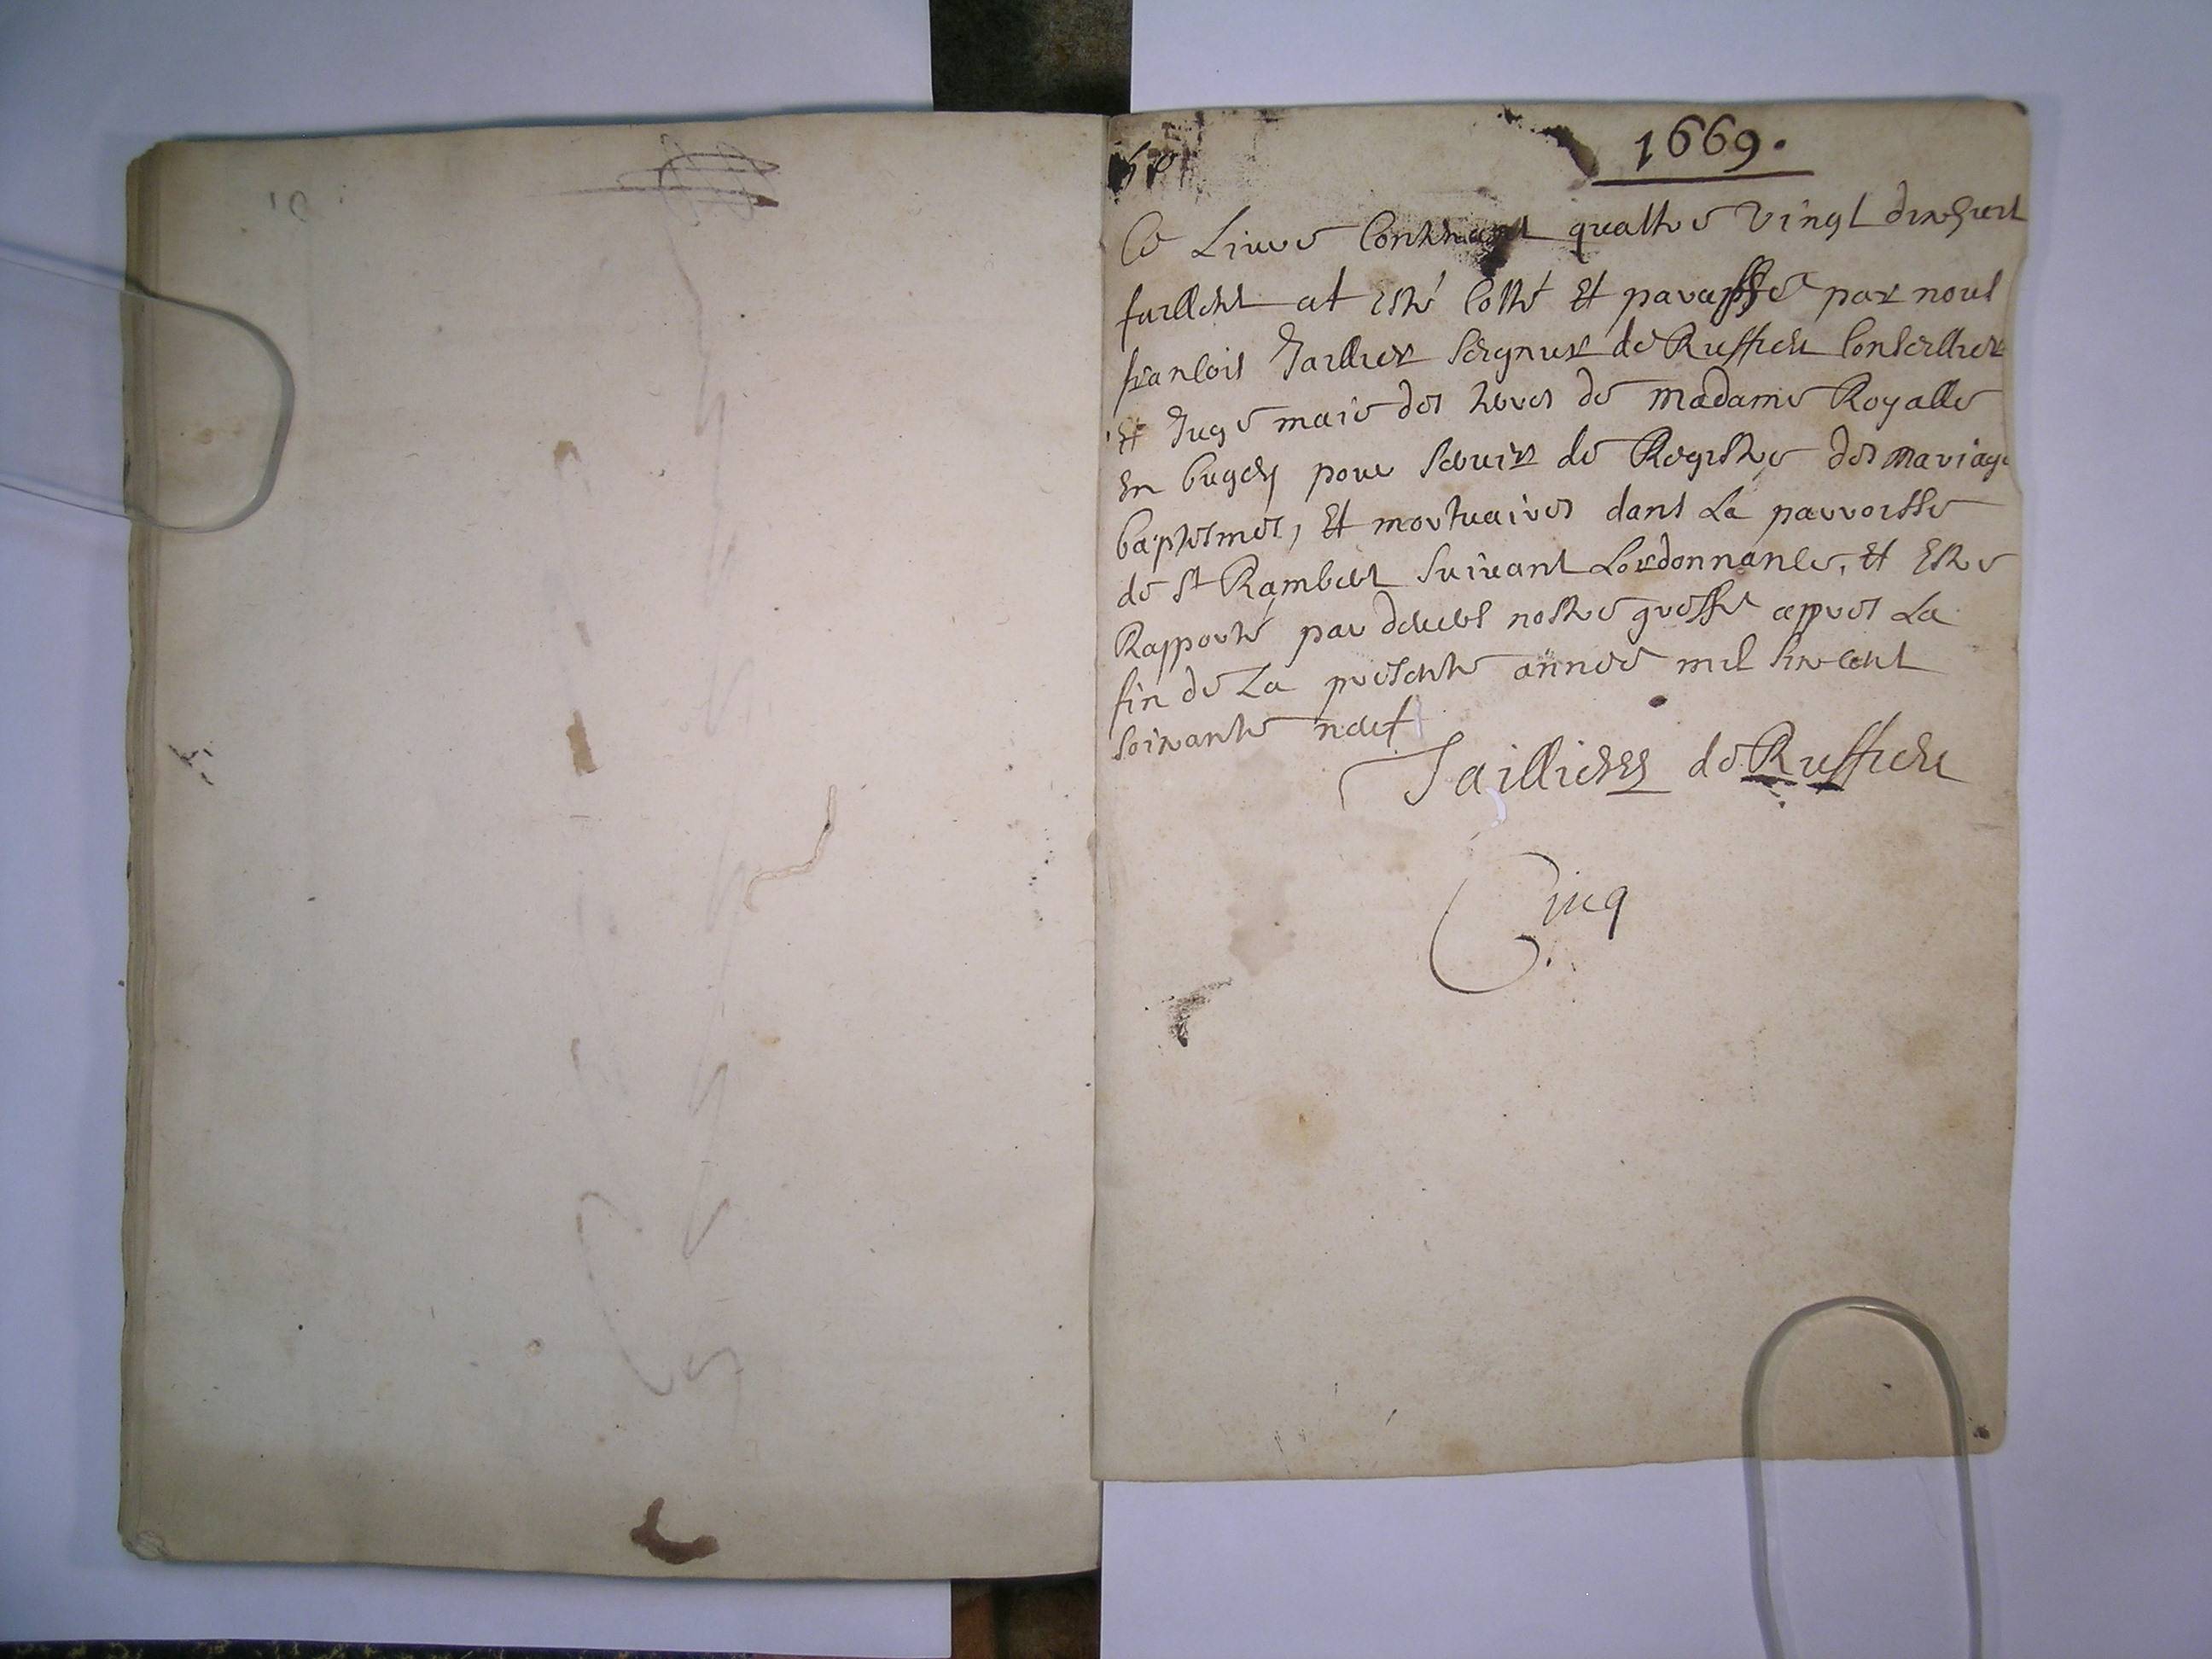 1669.
Ce Livre Contenant quattre Vingt dixhuit
fuillets at esté Cotté Et paraffé par nous
francois Taillier Seigneur de Ruffieu Conseillier
Et Juge maie des terres de Madame Royalle
En bugey pour Servir de Registre des mariage
baptesmes, Et mortuaires dans La parroisse
de St Rambert Suivant Lordonnance, Et Estre
Rapporté par devers nostre greffe appres La
fin de La presente année mil Six cent
Soixante neuf
Taillier de Ruffieu
Cinq